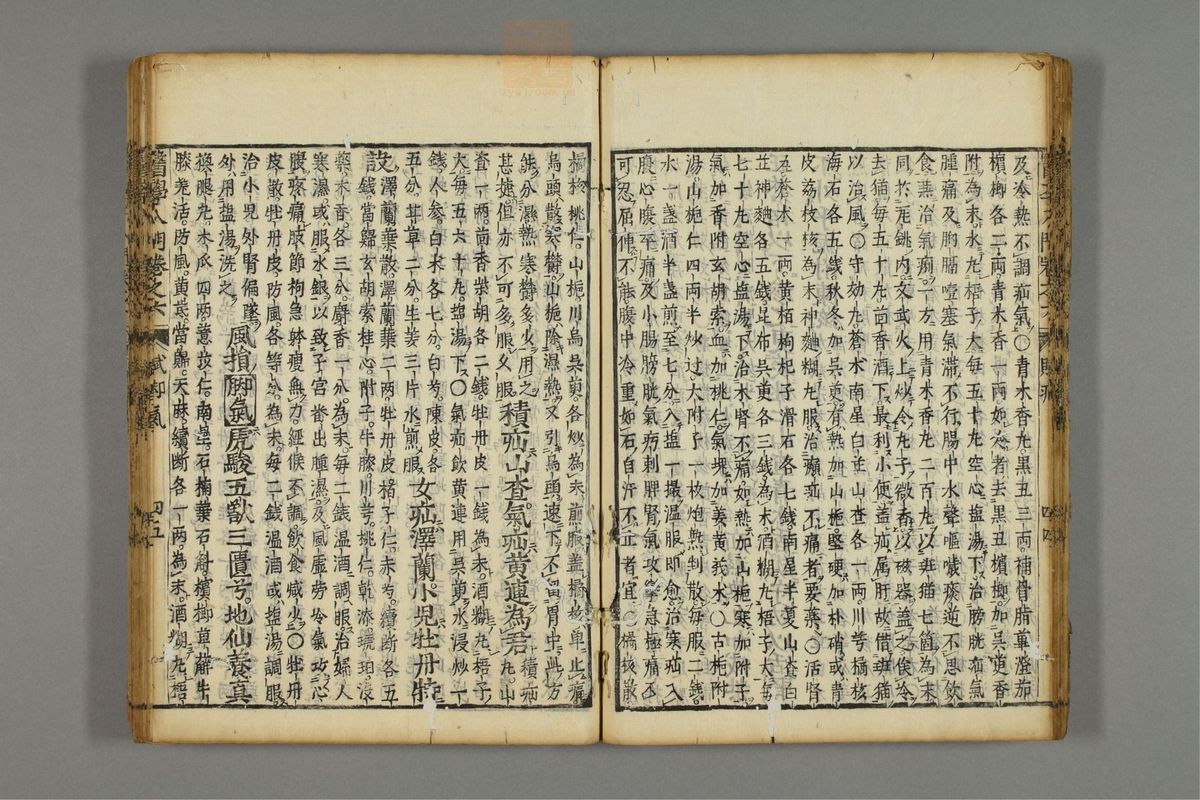 及冷熱不調疝氣○青木香丸黑丑三兩補骨脂蓽澄茄
檳榔各二兩青木香一兩如者去黑丑檳榔加吳萸香
附為末水丸梧子大每五十丸空心塩湯下治膀胱疝氣
腫痛及胸膈噎塞氣滯不行腸中水聲嘔噦痰逆不思飲
食兼治氣一方用青木香丸二百丸以班猫七箇為末
同於銚內文武火上炒令丸子微香以磁器盖之俟冷
去猫每五十丸茴香酒下最利小便盖疝属肝故借班猫
以治風○守効丸蒼术南星白芷山查各一兩川芎橘核
海石各五錢秋冬加吳萸有熱加山梔堅硬加朴硝或青
皮荔枝核為末神麯糊丸服治㿗疝不痛者要藥○活腎
丸蒼术一兩黄栢枸杞子滑石各七錢南星半夏山查白
芷神麯各五錢昆布吳萸各三錢為末酒糊丸梧子大每
七十丸空心塩湯下治木腎不痛如熱加山梔寒加附子
氣加香附玄胡索血加桃仁氣塊加姜黄莪术○古梔附
湯山梔仁四兩半炒过大附子一枚炮熟剉散每服二錢
水一盞酒半盞煎至七分入塩一撮温服即愈治寒疝入
腹心腹卒痛及小腸膀胱氣㽲刺脾腎氣攻攣急極痛不
可忍屈伸不能腹中冷重如石自汗不止者宜 橘核散
橘核桃仁山梔川烏吳萸各炒為末煎服盖橘核單止痛
烏頭散寒欝山梔除濕熱又引烏頭速下不留胃中此方
能分濕熱寒欝多少用之積疝山查氣疝黄連為君
甚捷但亦不可多服久服
查一兩茴香柴胡各二錢牡丹皮一錢為末酒糊丸梧子
大每五六十丸塩湯下○氣疝飲黄連用吳萸水浸炒一
錢人參白术各七分白芍陳皮各
五分甘草二分生姜三片水煎服
女疝澤蘭小兒牡丹特
設澤蘭葉散澤蘭葉二兩牡丹皮梔子仁赤芍續斷各五
錢當歸玄胡索桂心附子牛膝川芎桃仁乾漆琥珀沒
藥木香各三分麝香一分為末每二錢温酒調服治婦人
寒濕或服水銀以致子宮出腫濕及風虛勞冷氣攻心
腹疼痛肢節拘急觧瘦無力經候不調飲食减少○牡丹
皮散牡丹皮防風各等分為末每二錢温酒或塩湯調服
治小兒外腎偏墜
外用塩湯洗之
風損脚氣虎駿五獸三匱兮地仙養真
換腿丸木瓜四兩薏苡仁南星石楠葉石斛檳榔萆薢牛
膝羌活防風黄茋當歸天麻續斷各一兩為末酒糊丸梧
醫學入門卷之六
脚氣
四五